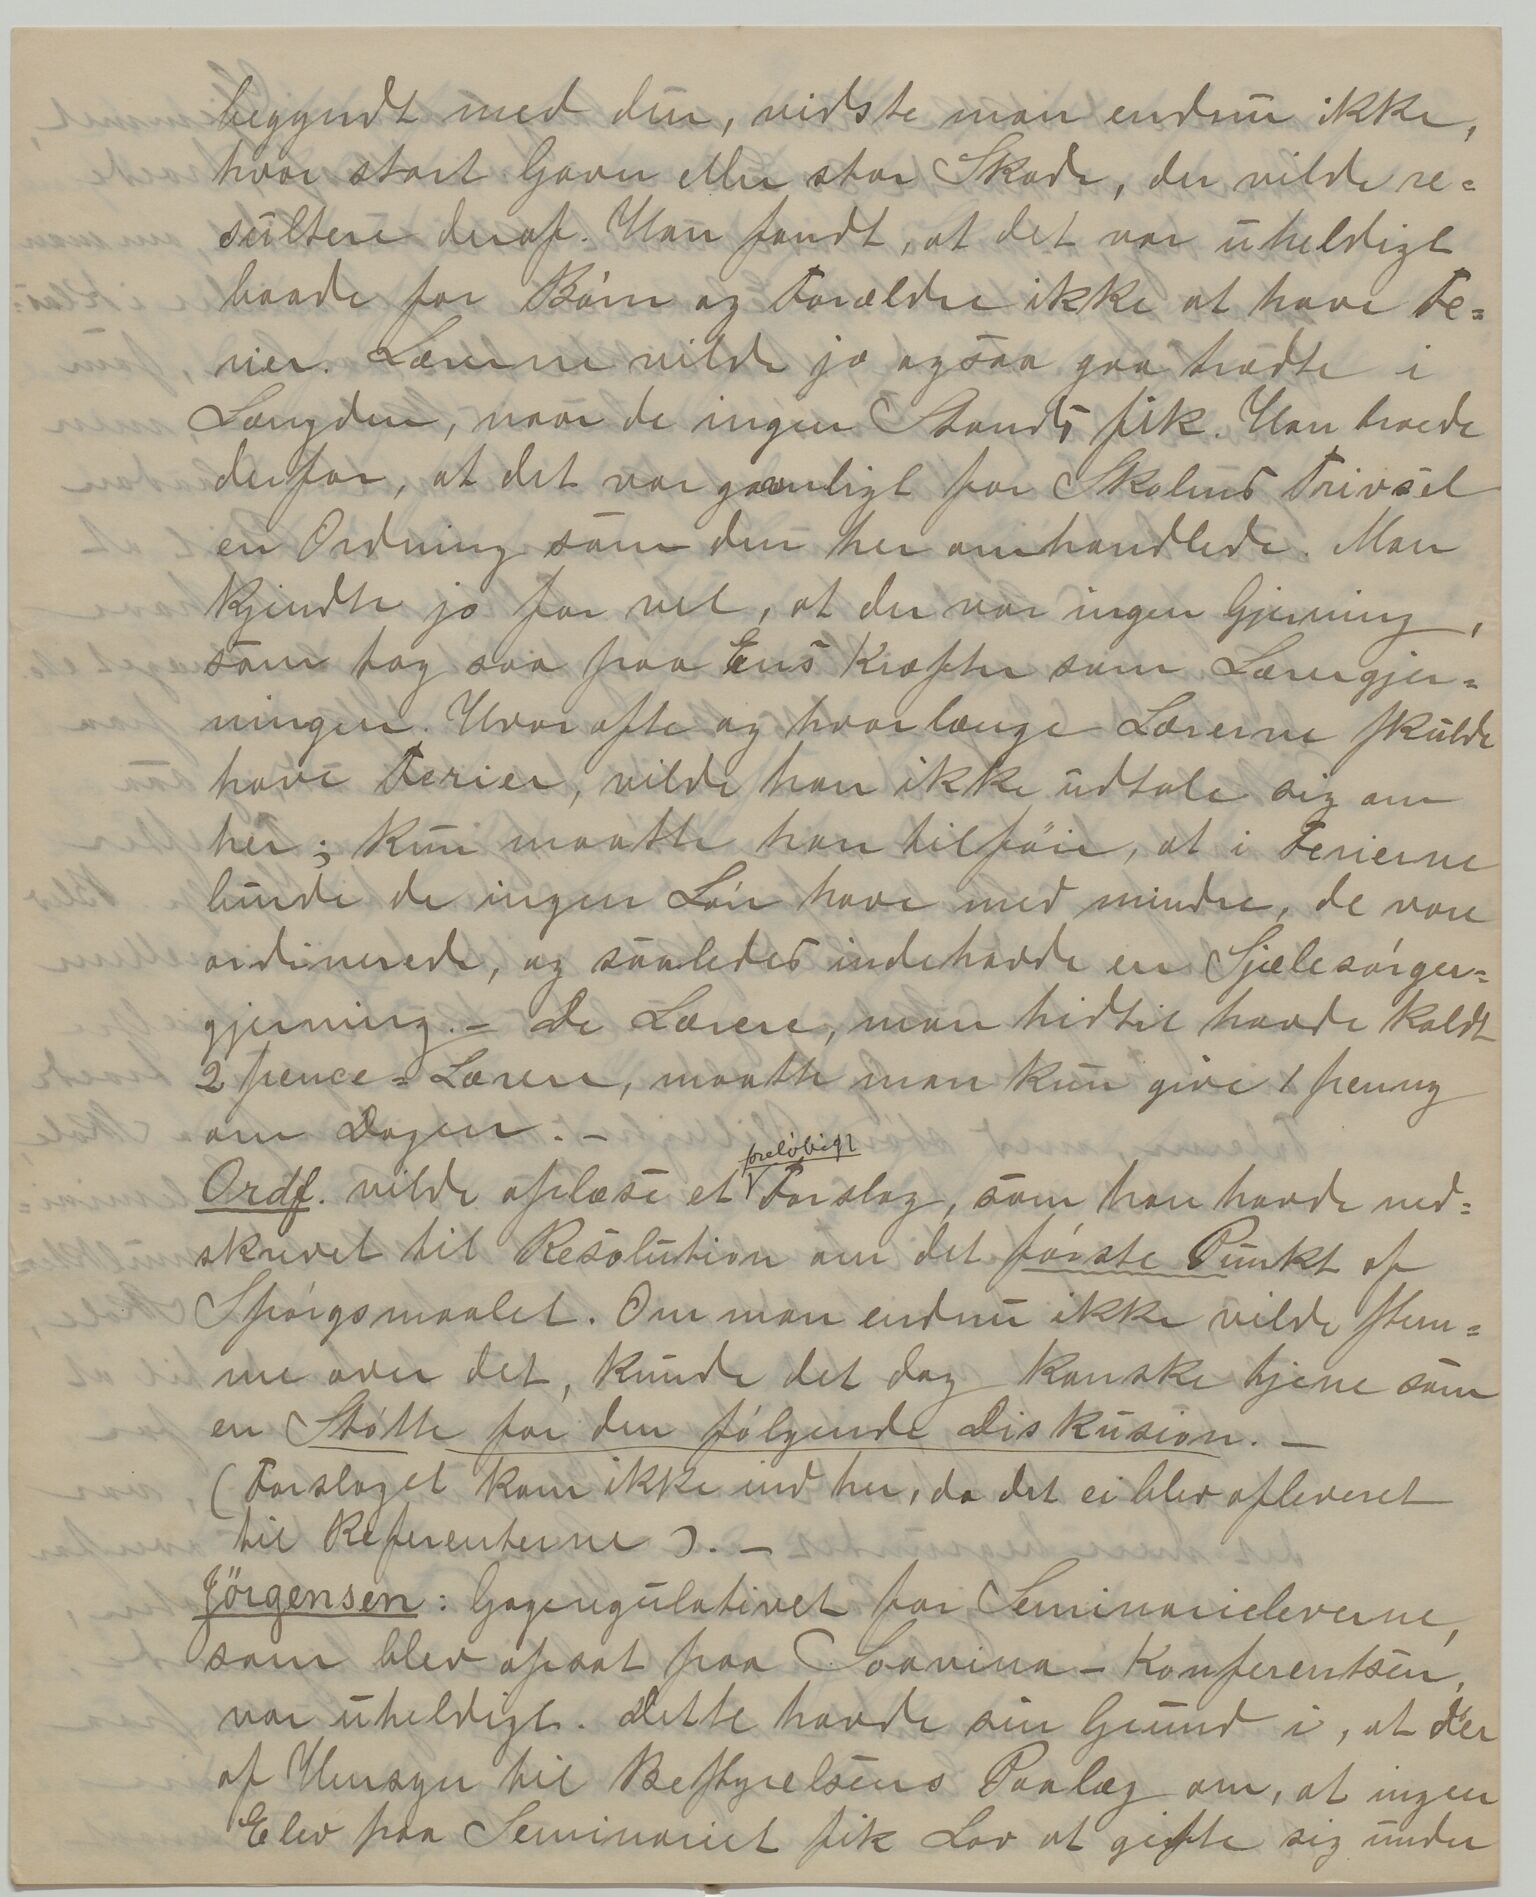 begyndt med den, vidste man endnu ikke,
hvor stort Gavn eller stor Skade, der vilde re=
sultere deraf. Han fandt, at det var uheldigt
baade for Börn og Forældre ikke at have Fe=
rier. Lærerne vilde jo ogsaa gaa trædte i
Længden, naar de ingen Stands fik. Han troede
derfor, at det var gavnligt for Skolens Trivsel
en Ordning som den her omhandlede. Man
kjendte jo for vel, at der var ingen Gjerning,
som tog saa paa Ens Kræfter som Lærergjer=
ningen. Hvor ofte og hvor længe Lærerne skulde
have Ferier, vilde han ikke udtale sig om
her; kun maatte han tilföie, at i Ferierne
burde de ingen Lön have med mindre, de vare
ordinerede, og saaledes indehavde en Sjælesörger=
gjerning. – De Lærere, man hidtil havde kaldt
2 pence = Lærere, maatte man kun give 1 penny
om Dagen. –
Ordf. vilde oplæse et foreløbigt Forslag, som han havde ned=
skrevet til Resolution om det förste Punkt af
Spörgsmaalet. Om man endnu ikke vilde stem=
me over det, kunde det dog kanske tjene som
en Stötte for den fölgende Diskusion. –
(Forslaget kom ikke ind her, da det ei blev afleveret
til Referenterne). –
Jörgensen: Gageregulativet for Seminarieleverne,
som blev opsat paa Soavina – Konferentsen,
var uheldigt. Dette havde sin Grund i, at der
af Hensyn til Bestyrelsens Paalæg om, at ingen
Elev paa Seminariet fik Lov at gifte sig under